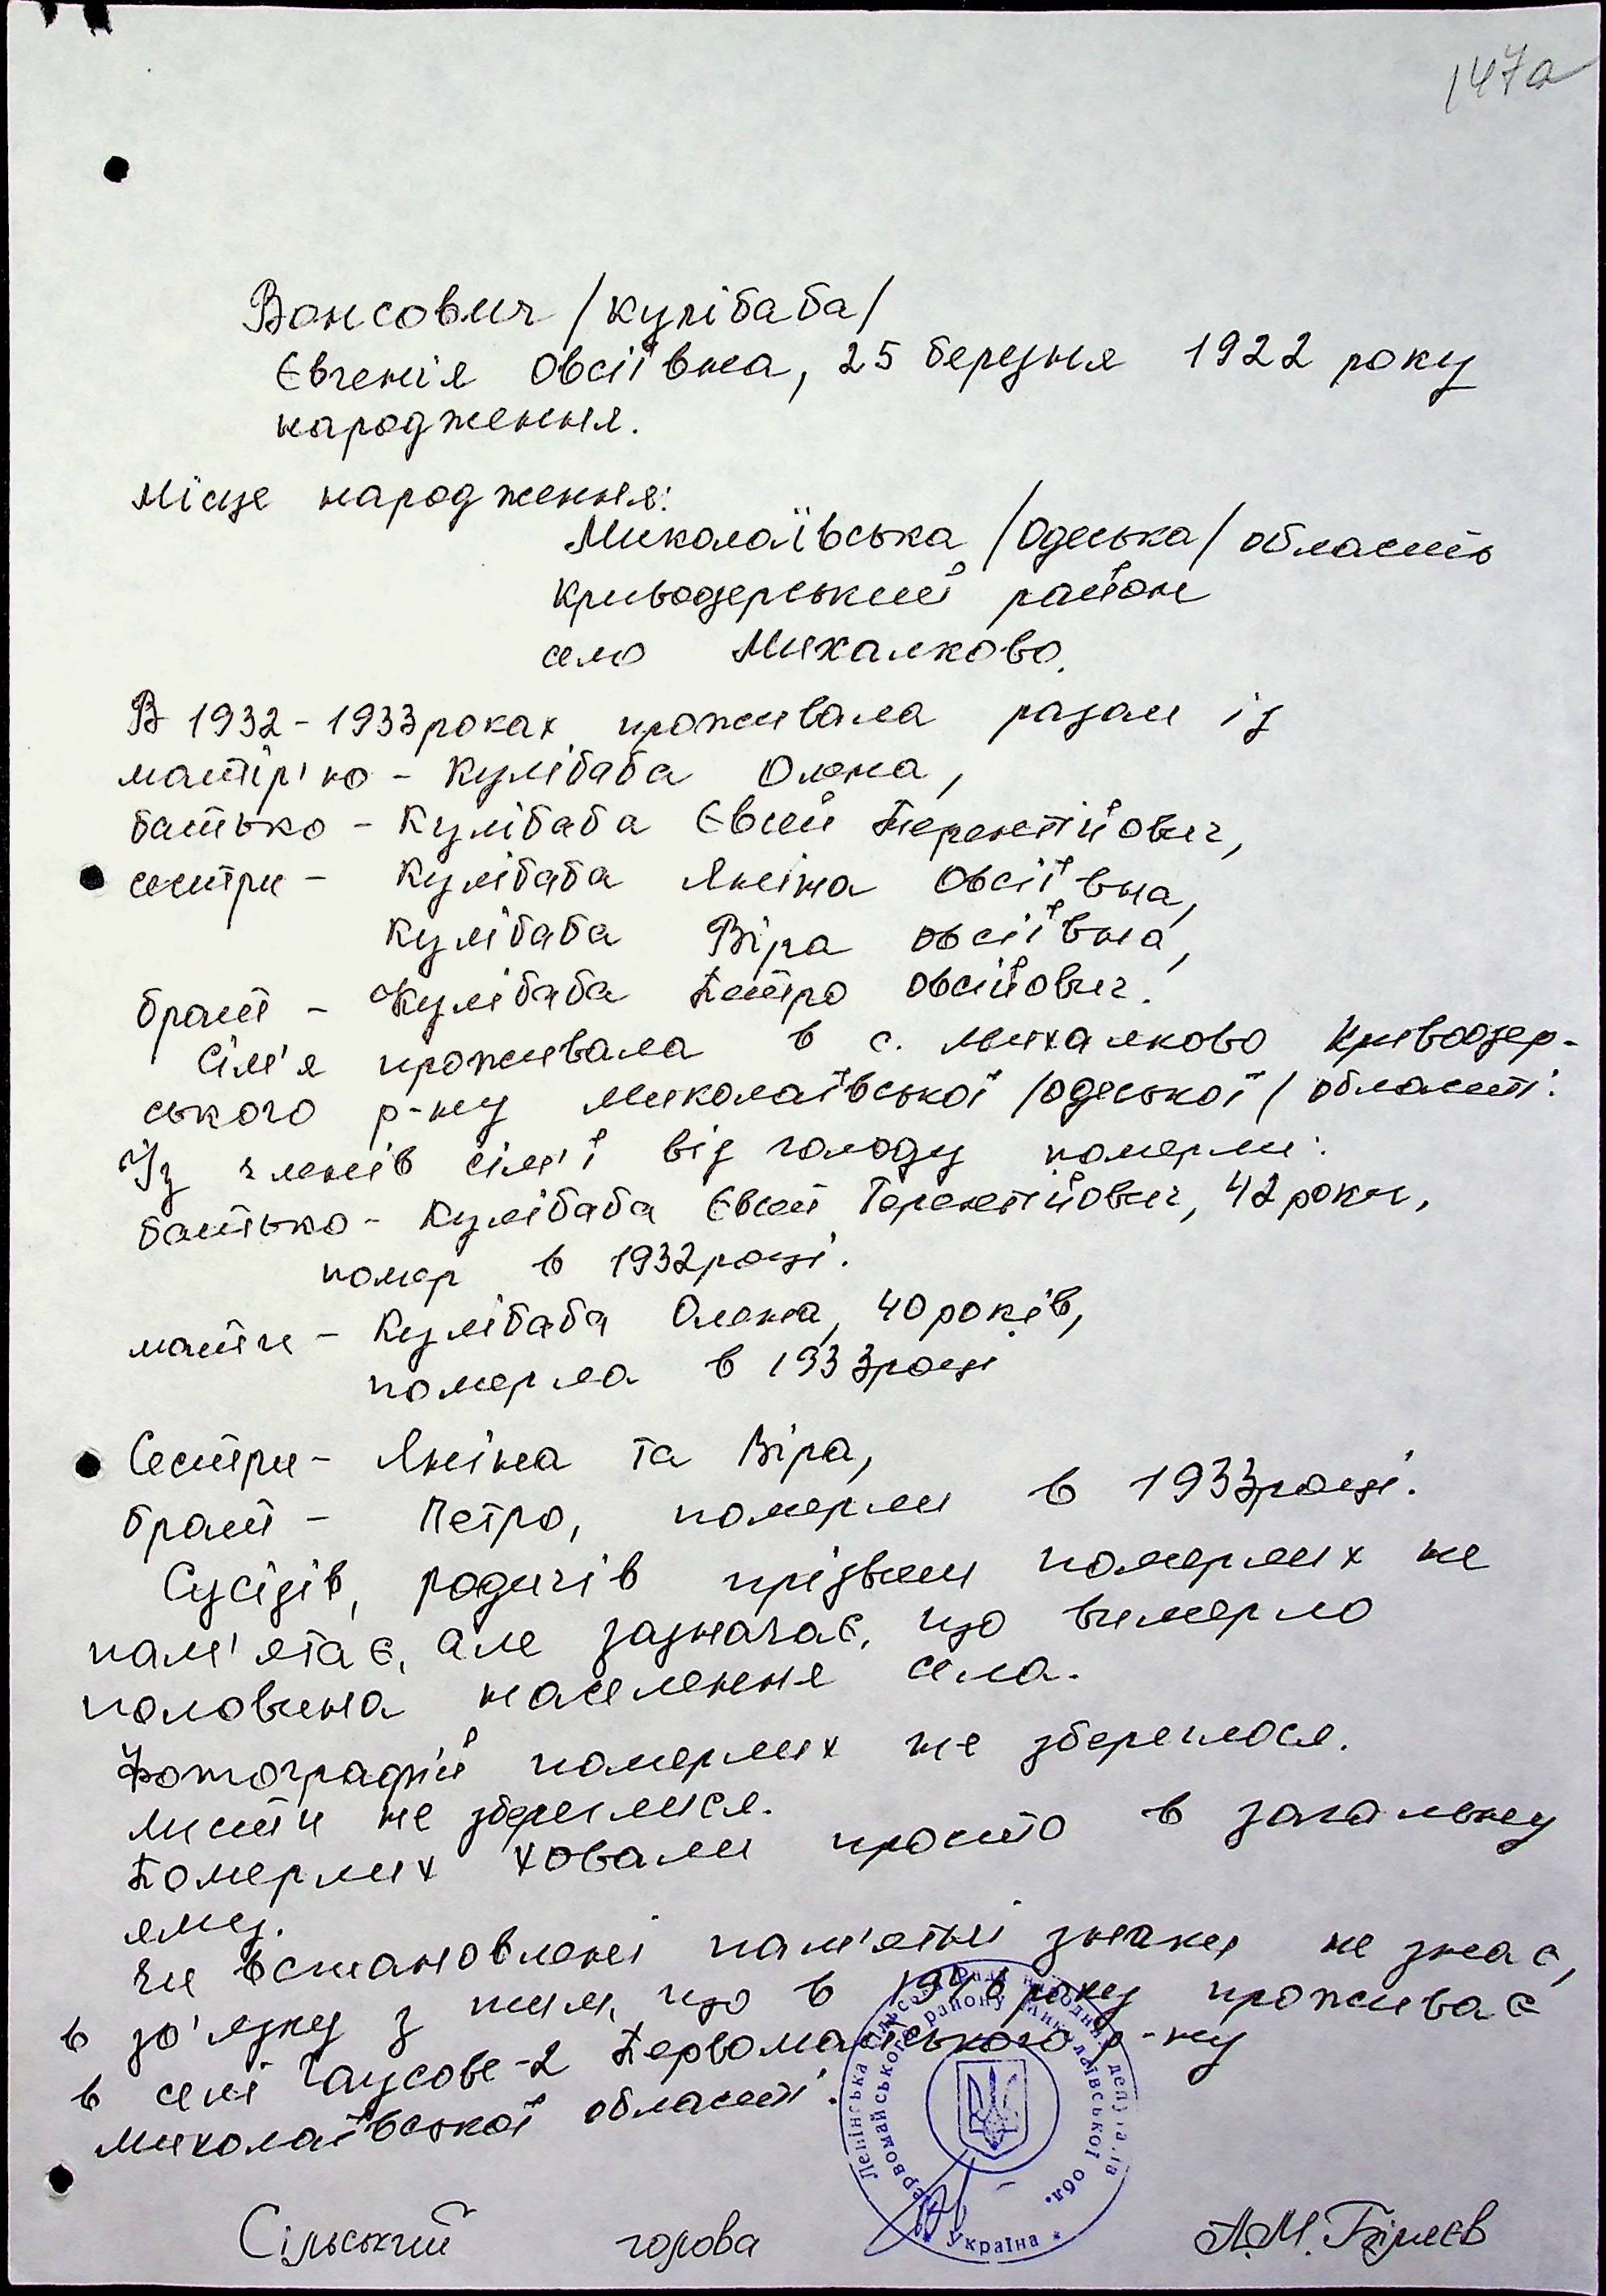 147а
Вонсович /Кулібаба/
Євгенія Овсіївна, 25 березня 1922 року
народження.
Місце народження:
Миколаївська /Одеська/ область
Кривоозерський район
село Михалково.
В 1932-1933 роках проживала разом із
матір'ю - Кулібаба Олена,
батько - Кулібаба Євсей Терентійович,
сестри - Кулібаба Яніна Овсіївна,
Кулібаба Віра Овсіївна,
брат - Кулібаба Петро Овсійович.
Сім'я проживала в с. Михалково Кривоозер-
ського р-ну Миколаївської /Одеської/ області.
Із членів сім'ї від голоду померли:
батько - Кулібаба Євсей Терентійович, 42 роки,
помер в 1932 році.
мати - Кулібаба Олена, 40 років,
померла в 1933 році
Сестри - Яніна та Віра,
брат - Петро, померли в 1933 році.
Сусідів, родичів прізвищ померлих не
пам'ятає, але зазначає, що вимерло
половина населення села.
Фотографій померлих не збереглося.
Листи не збереглися.
Померлих ховали просто в загальну
яму.
Чи встановлені пам'ятні знаки не знає,
в зв'язку з тим, що в 1946 року проживає
в селі Чаусове-2 Первомайського р-ну
Миколаївської області.
Ленінська сільська Рада народних депутатів
Первомайського району Миколаївської обл.
* Україна *
Сільський голова А.М. Біляєв